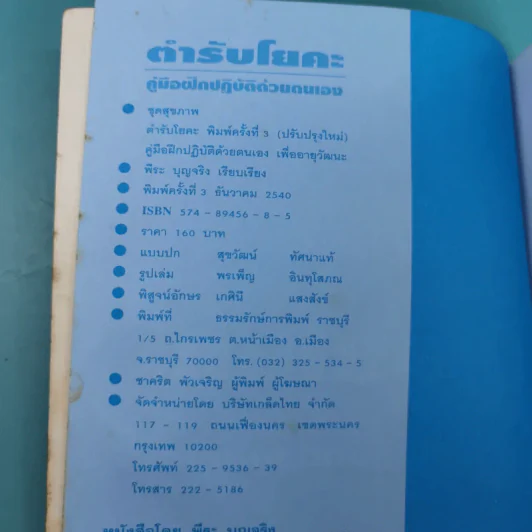 ตำรับโยคะ
คู่มือฝึกปฏิบัติด้วยตนเอง
ชุดสุขภาพ
ตำรับโยคะ พิมพ์ครั้งที่ 5 (ปรับปรุงใหม่)
คู่มือฝึกปฏิบัติด้วยตนเอง เพื่ออายุวัฒนะ
พีระ บุญจริง เรียบเรียง
พิมพ์ครั้งที่ 3 ธันวาคม 2540
ISBN 574 - 89456 - 8 - 5
ราคา 160 บาท
แบบปก สุขวัฒน์ ทัศนาแท้
รูปเล่ม พรเพ็ญ อินทุโสภณ
พิสูจน์อักษร เกศินี แสงสังข์
พิมพ์ที่ ธรรมรักษ์การพิมพ์ ราชบุรี
1/5 ถ.ไกรเพชร ต.หน้าเมือง อ.เมือง
จ.ราชบุรี 70000 โทร. (032) 325 - 534 - 5
ชาคริต พัวเจริญ ผู้พิมพ์ ผู้โฆษณา
จัดจำหน่ายโดย บริษัทเกล็ดไทย จำกัด
117 - 119 ถนนเฟื่องนคร เขตพระนคร
กรุงเทพ 10200
โทรศัพท์ 225 - 9536 - 39
โทรสาร 222 - 5186
หนังสือโดย พีระ บุญจริง